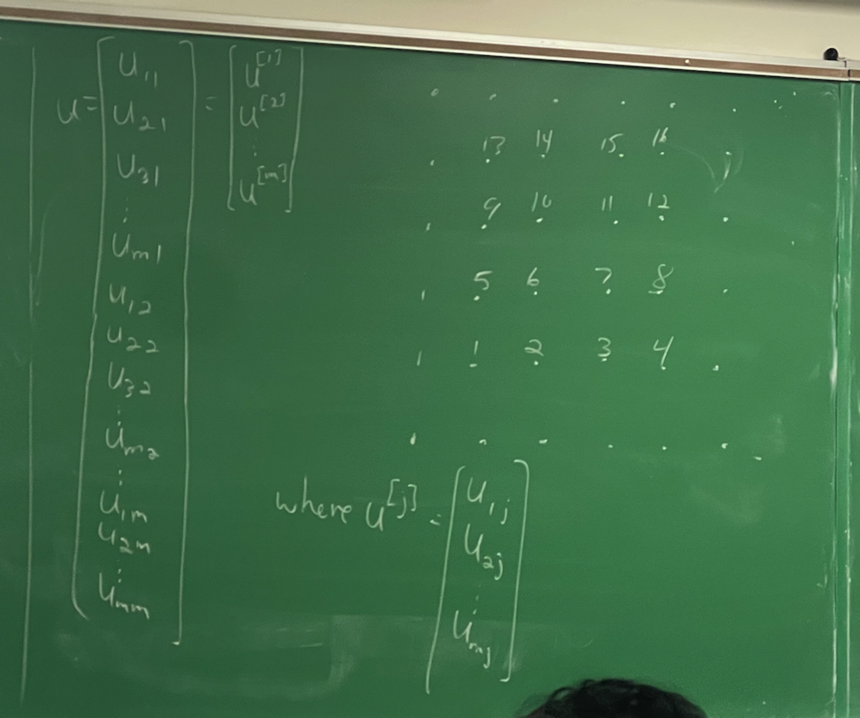 u = [u₁₁ u₂₁ u₃₁ ⋮ uₘ₁ u₁₂ u₂₂ u₃₂ ⋮ uₘ₂ ⋮ u₁ₘ u₂ₘ ⋮ uₘₘ] = [u^[1] u^[2] ⋮ u^[m]]
13 14 15 16
9 10 11 12
5 6 7 8
1 2 3 4
where u^[j] = [u₁ⱼ u₂ⱼ ⋮ uₘⱼ]